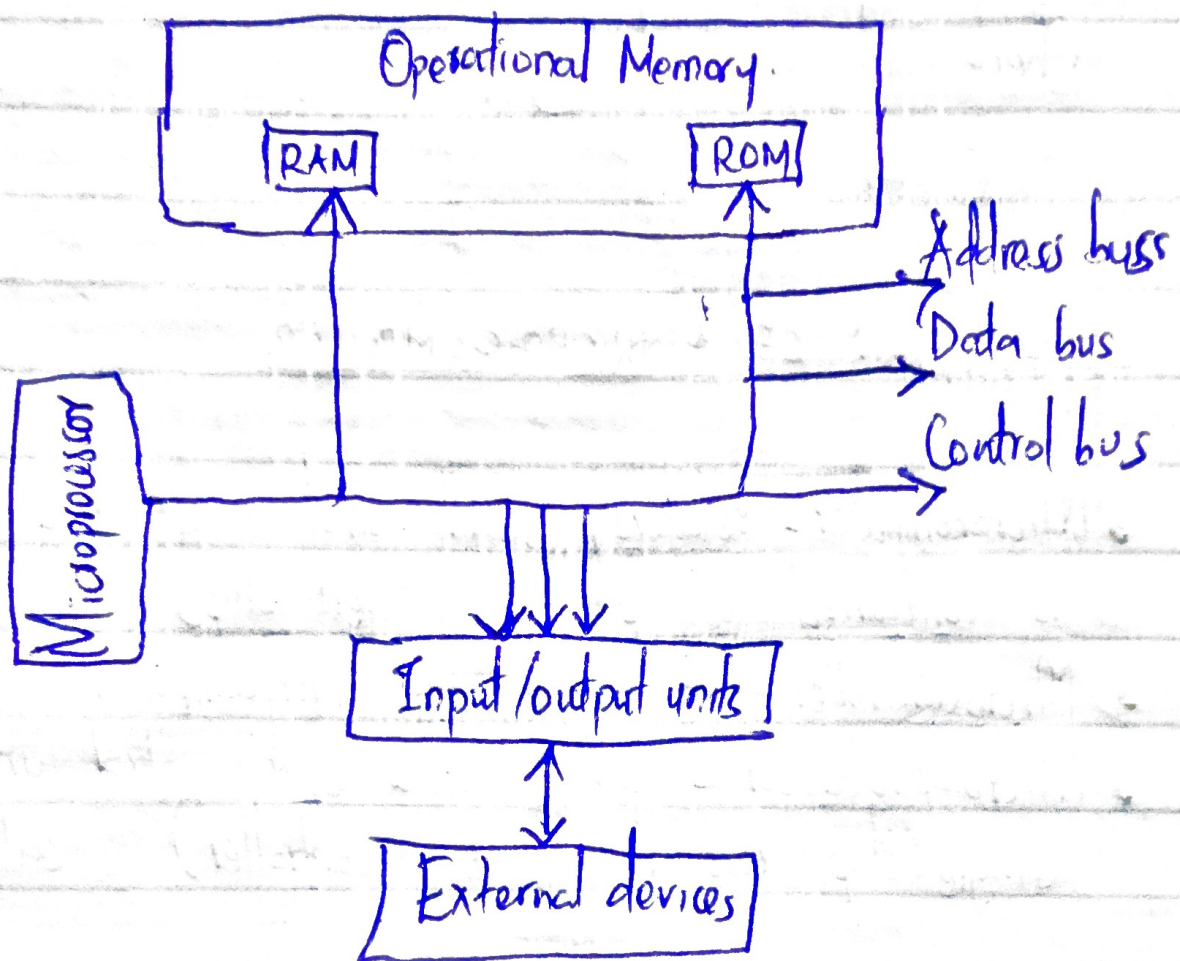 Operational Memory.
RAM
ROM
Address buss
Data bus
Control bus
Microprocessor
Input/output units
External devices